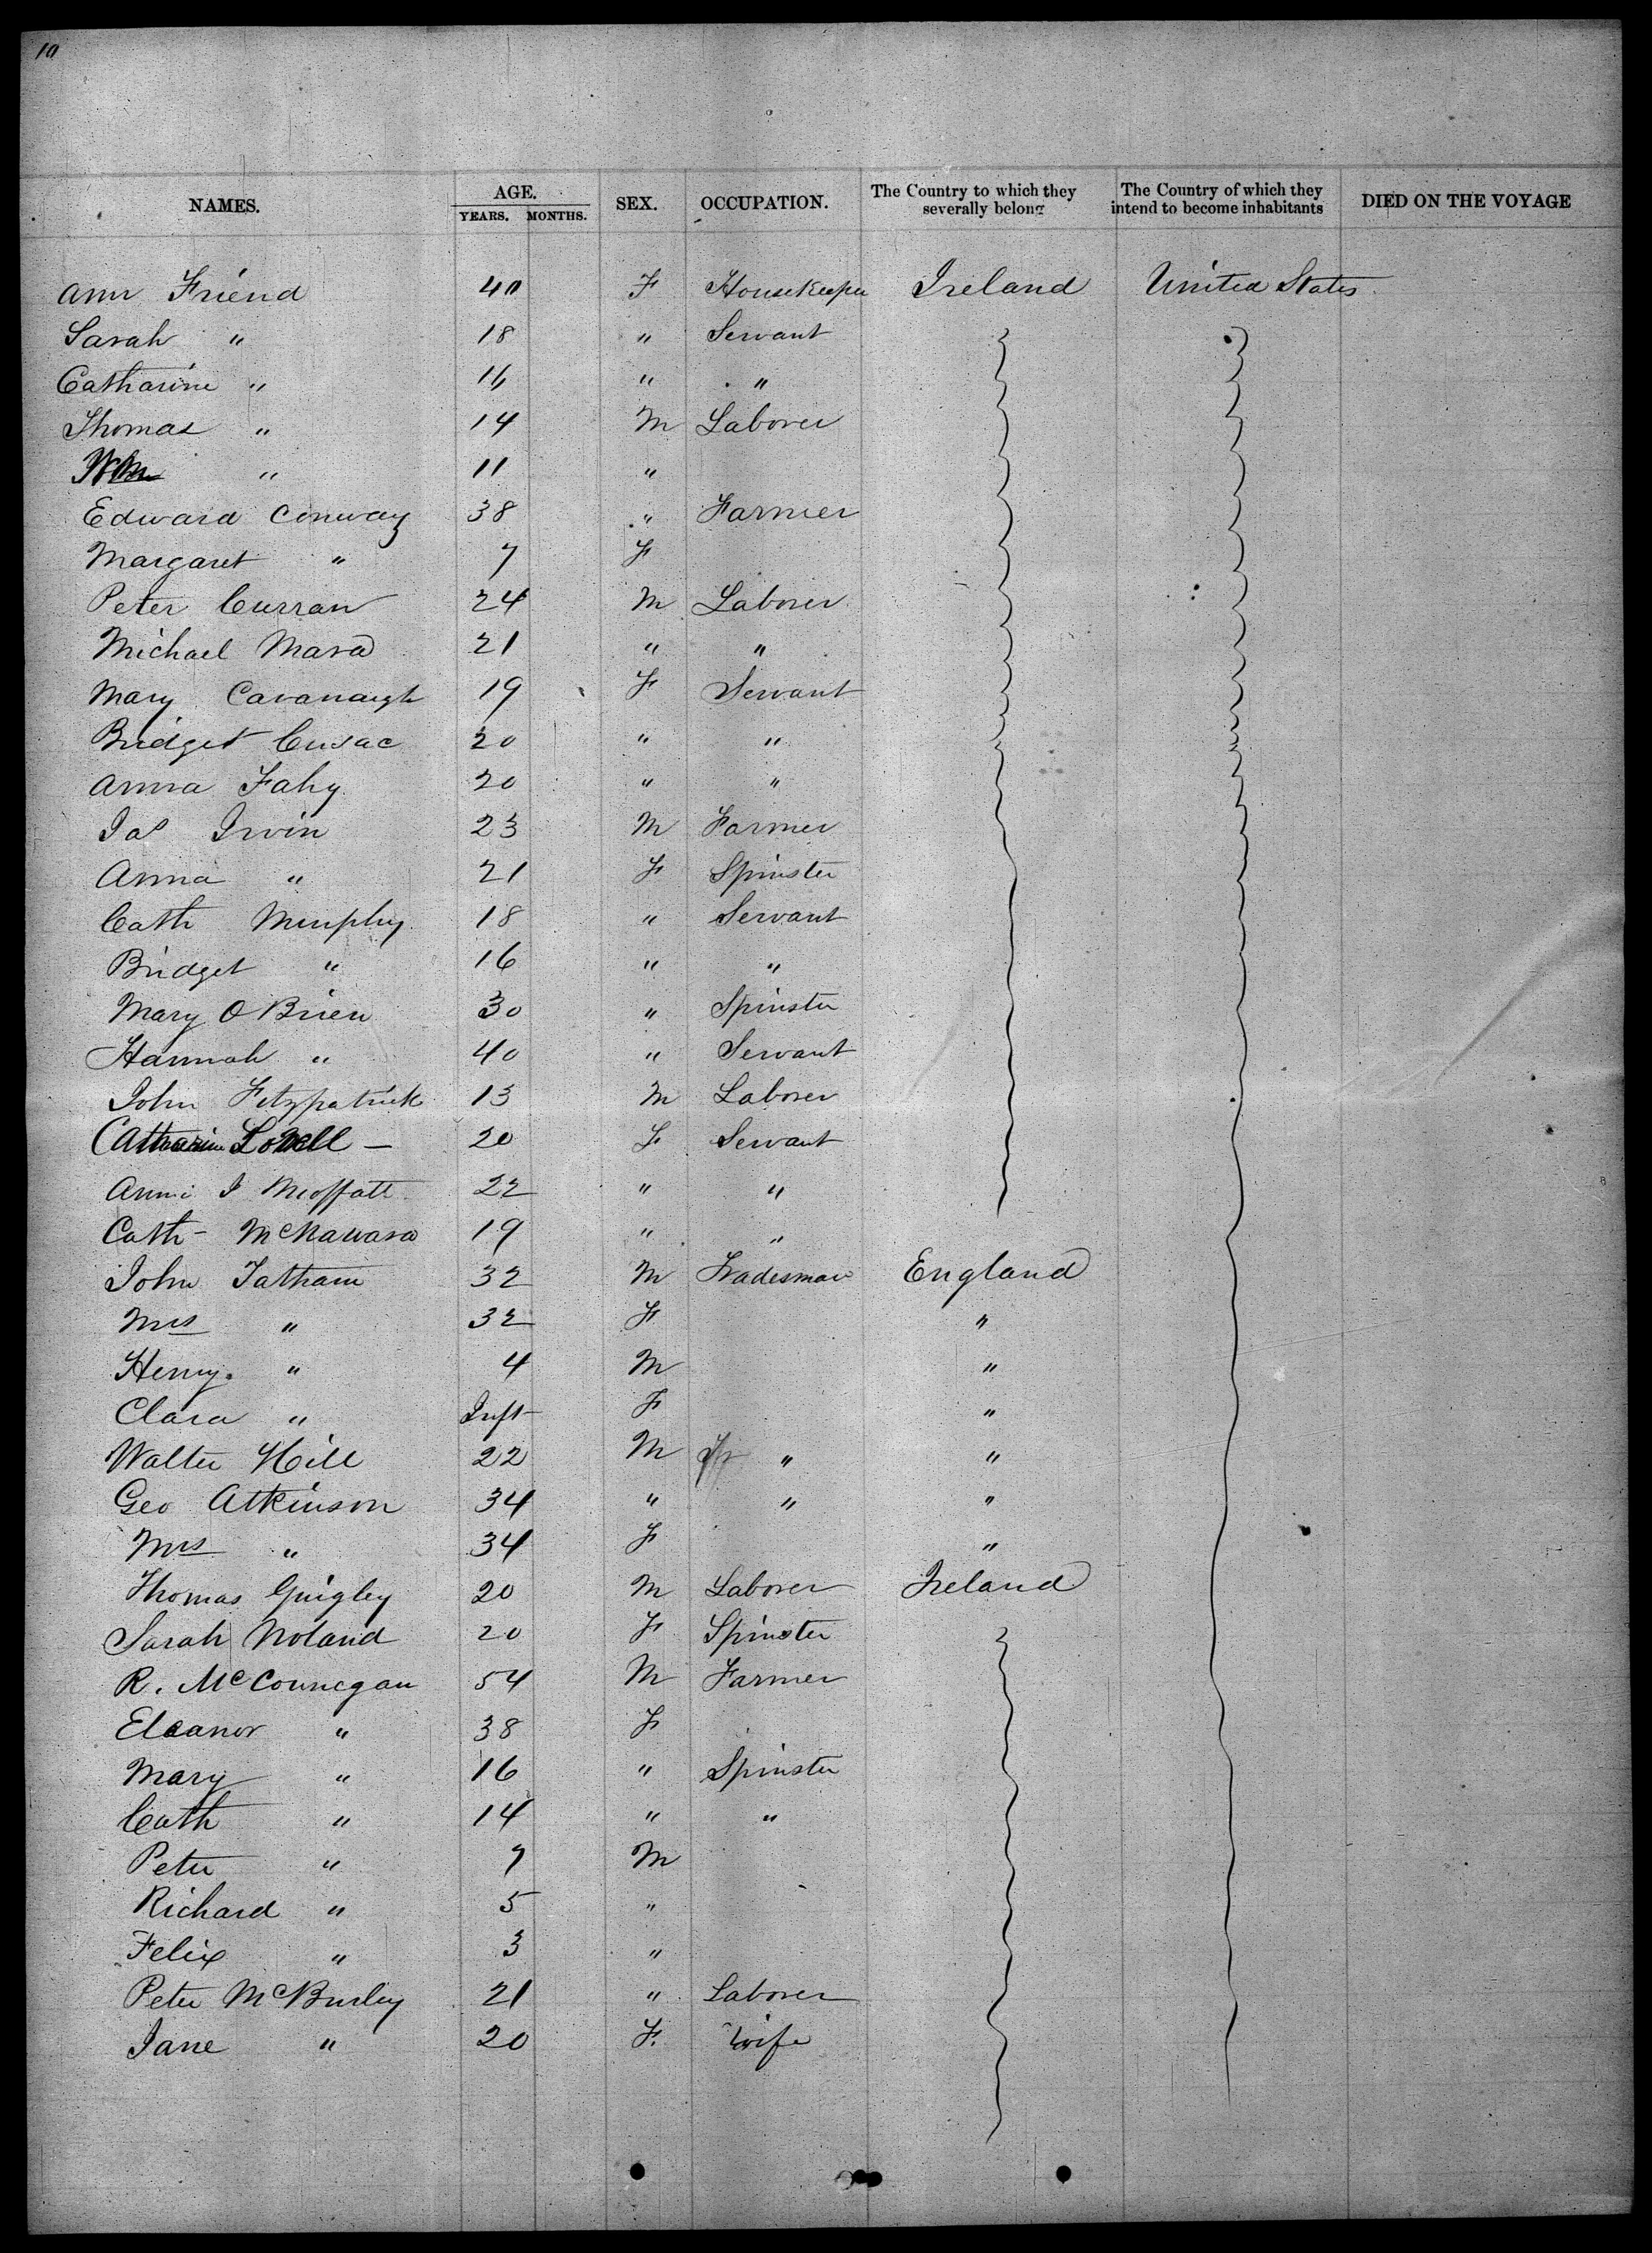 10
NAMES. AGE. YEARS. MONTHS. SEX. OCCUPATION. The Country to which they severally belong The Country of which they intend to become inhabitants DIED ON THE VOYAGE
Ann Friend 40 F Housekeeper Ireland United States
Sarah " 18 " Servant
Catharine " 16 " "
Thomas " 14 M Laborer
Wm " 11 "
Edward Conway 38 " Farmer
Margaret " 7 F
Peter Curran 24 M Laborer
Michael Mara 21 " "
Mary Cavanaugh 19 F Servant
Bridget Cusac 20 " "
Anna Fahy 20 " "
Jas Irvin 23 M Farmer
Anna " 21 F Spinster
Cath Murphy 18 " Servant
Bridget " 16 " "
Mary O Brien 30 " Spinster
Hannah " 40 " Servant
John Fitzpatrick 13 M Laborer
Catharine 20 F Servant
Annie J Moffatt 22 " "
Cath McNamara 19 " "
John Tatham 32 M Tradesman England
Mrs " 32 F "
Henry " 4 M "
Clara " Inft F "
Walter Hill 22 M " "
Geo Atkinson 34 " " "
Mrs " 34 F "
Thomas Quigley 20 M Laborer Ireland
Sarah Noland 20 F Spinster
R. McConnegan 54 M Farmer
Eleanor " 38 F
Mary " 16 " Spinster
Cath " 14 " "
Peter " 7 M
Richard " 5 "
Felix " 3 "
Peter McBurley 21 " Laborer
Jane " 20 F. Wife